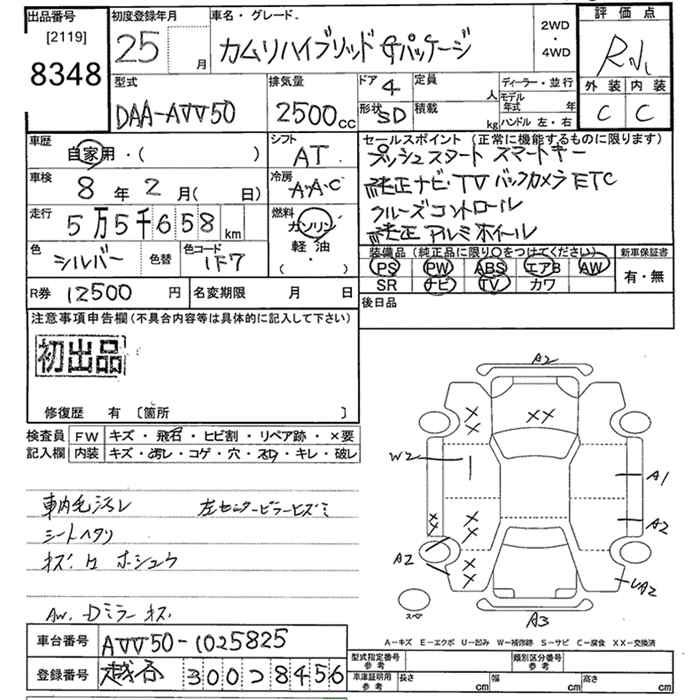 出品番号 [2119] 8348
初度登録年月 25 月
車名・グレード カムリハイブリッド Gパッケージ
2WD ・ 4WD
評価点 R
外装 内装
C C
型式 DAA-AVV50
排気量 2500cc
ドア 4
形状 SD
定員 人
積載 kg
ディーラー・並行
モデル年式 年
ハンドル 左・右
車歴 自家用・( )
シフト AT
車検 8年2月( 日)
冷房 AAC
走行 5万5千658km
燃料 ガソリン 軽油 ・( )
色 シルバー 色替
色コード 1F7
R券 12500 円
名変期限 月 日
セールスポイント (正常に機能するものに限ります)
プッシュスタート スマートキー
純正ナビ・TV バックカメラ ETC
クルーズコントロール
純正アルミホイール
装備品 (純正品に限り○をつけてください) 新車保証書
PS PW ABS エアB AW 有・無
SR ナビ TV カワ
後日品
注意事項申告欄 (不具合内容等は具体的に記入して下さい)
初出品
修復歴 有 〔箇所 〕
検査員記入欄
FW キズ・飛石・ヒビ割・リペア跡・×要
内装 キズ・汚レ・コゲ・穴・スレ・キレ・破レ
車内毛汚レ 左センターピラーヒズミ
シートヘタリ
ホシュウ
AW. Dミラーキズ
A2
XX
W2
A1
A2
A2
A2
A3
スペア
A-キズ E-エクボ U-凹み W-補修跡 S-サビ C-腐食 XX-交換済
車台番号 AVV50-1025825
登録番号 越谷 300 8456
型式指定番号 参考
類別区分番号 参考
車庫証明用 参考 長さ cm 幅 cm 高さ cm